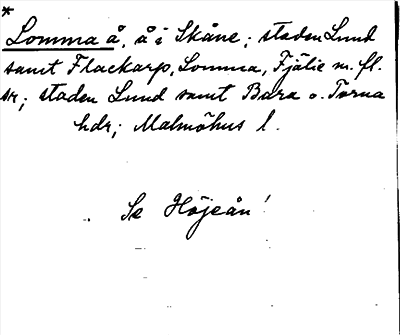 *
Lomma å, å i Skåne; staden Lund
samt Flackarp, Lomma, Fjälie m. fl.
sr; staden Lund samt Bara o. Torna
hdr; Malmöhus l.
Se Höjeån!